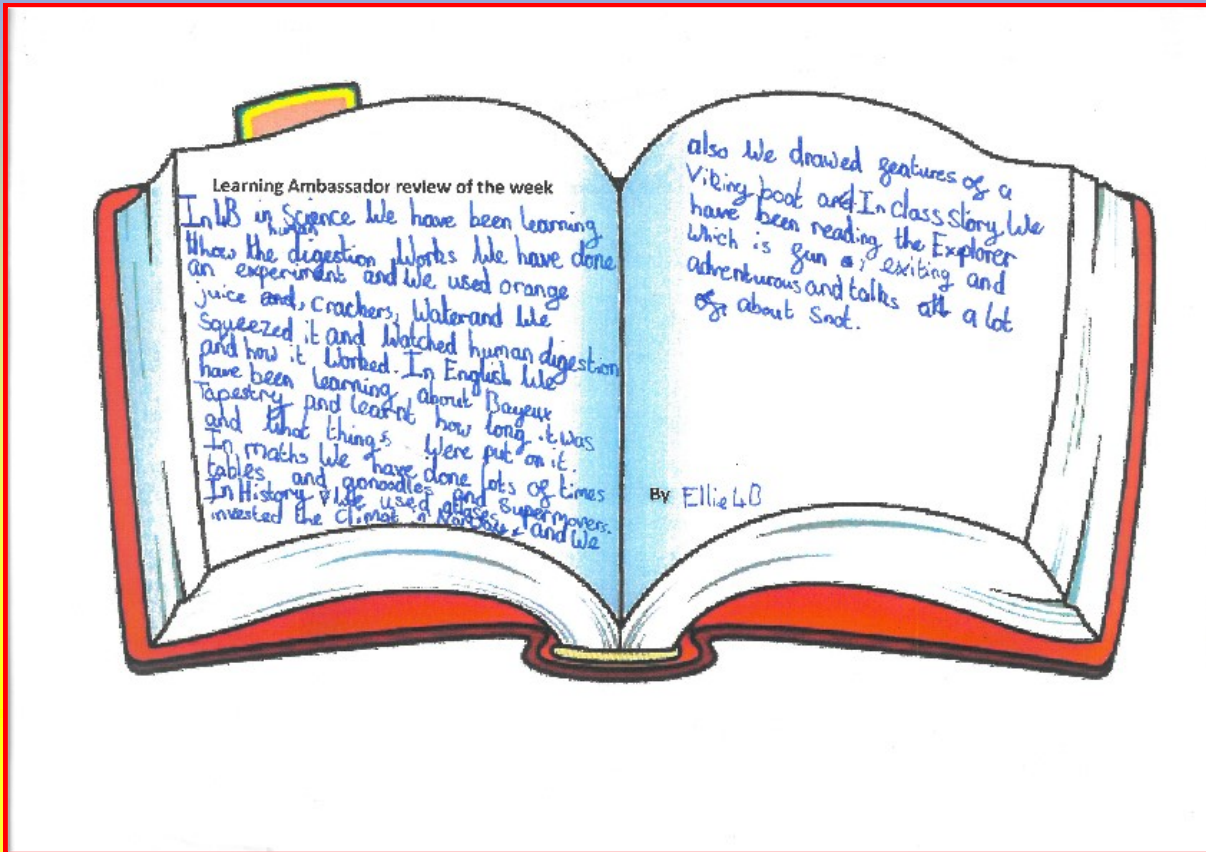 Learning Ambassador review of the week
In 4B in Science We have been learning
how the human digestion Works We have done
an experiment and We used orange
juice and, crackers, Water and We
Squeezed it and Watched human digestion
and how it Worked. In English We
have been learning about Bayeux
Tapestry and learnt how long it was
and What things Were put on it.
In maths We have done lots of times
tables and gonoodles and Supermovers.
In History We used atlases
invested the Climat in Norway and We
also We drawed features of a
Viking boat and In class story We
have been reading the Explorer
Which is fun, exiting and
adventurous and talks a lot
about Snot.
By Ellie 4B